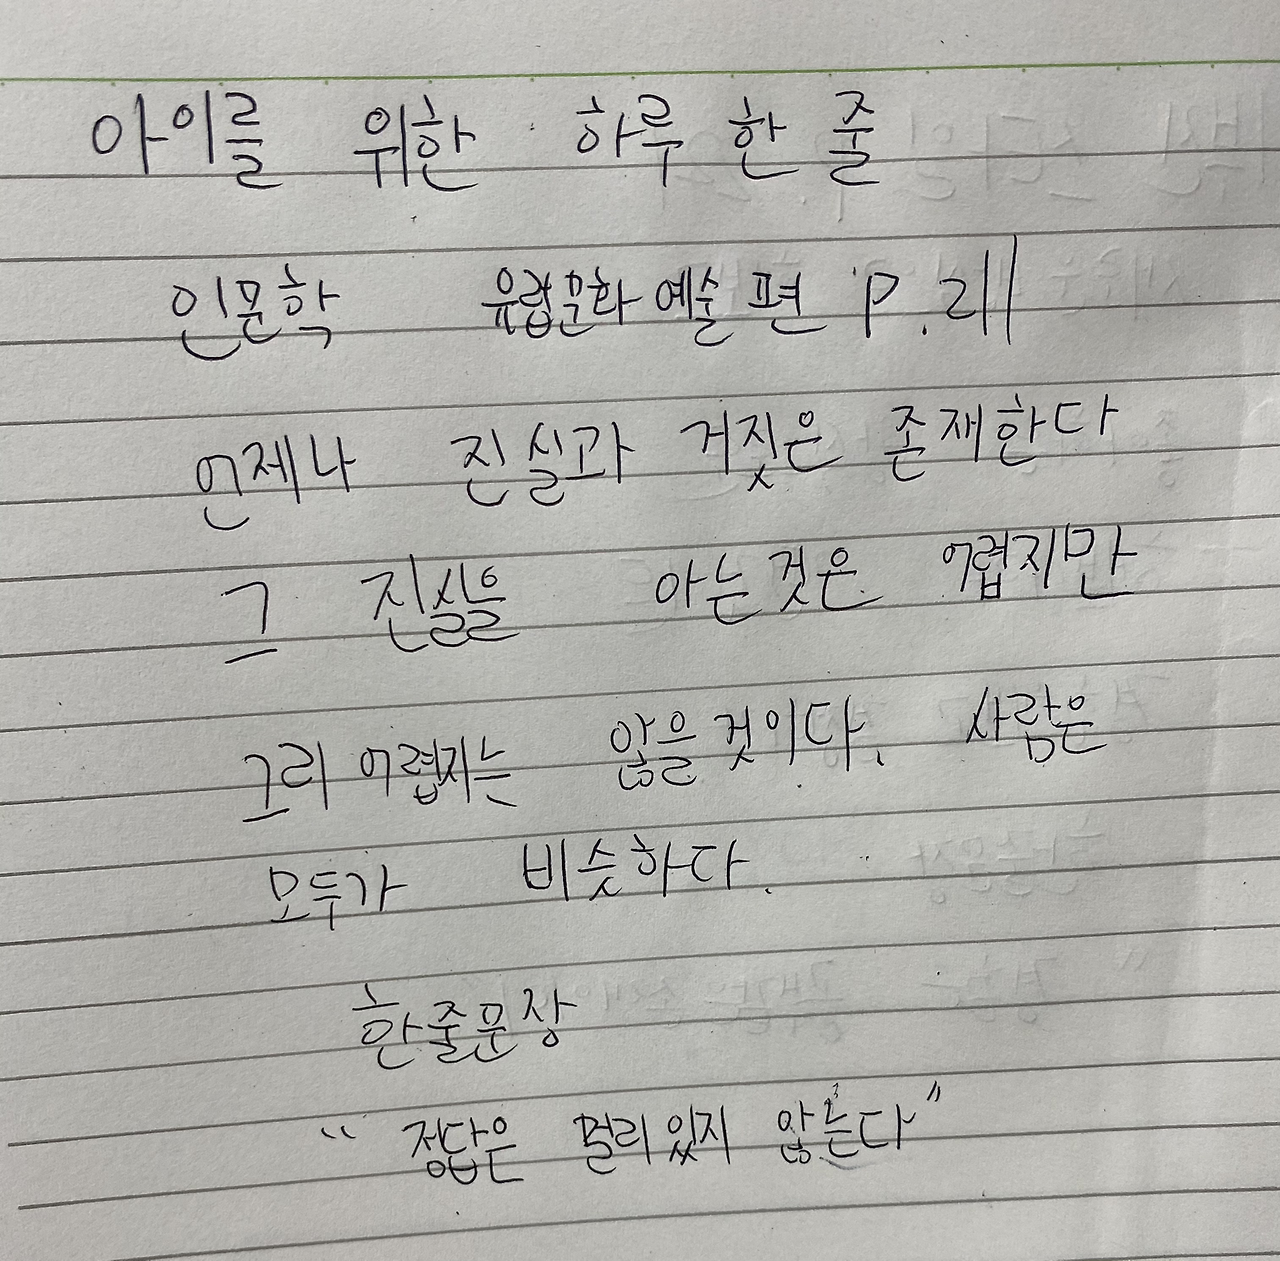 아이를 위한 하루 한 줄
인문학 유럽문화예술편 P.211
언제나 진실과 거짓은 존재한다
그 진실을 아는것은 어렵지만
그리 어렵지는 않을것이다. 사람은
모두가 비슷하다.
한줄문장
“정답은 멀리있지 않는다”